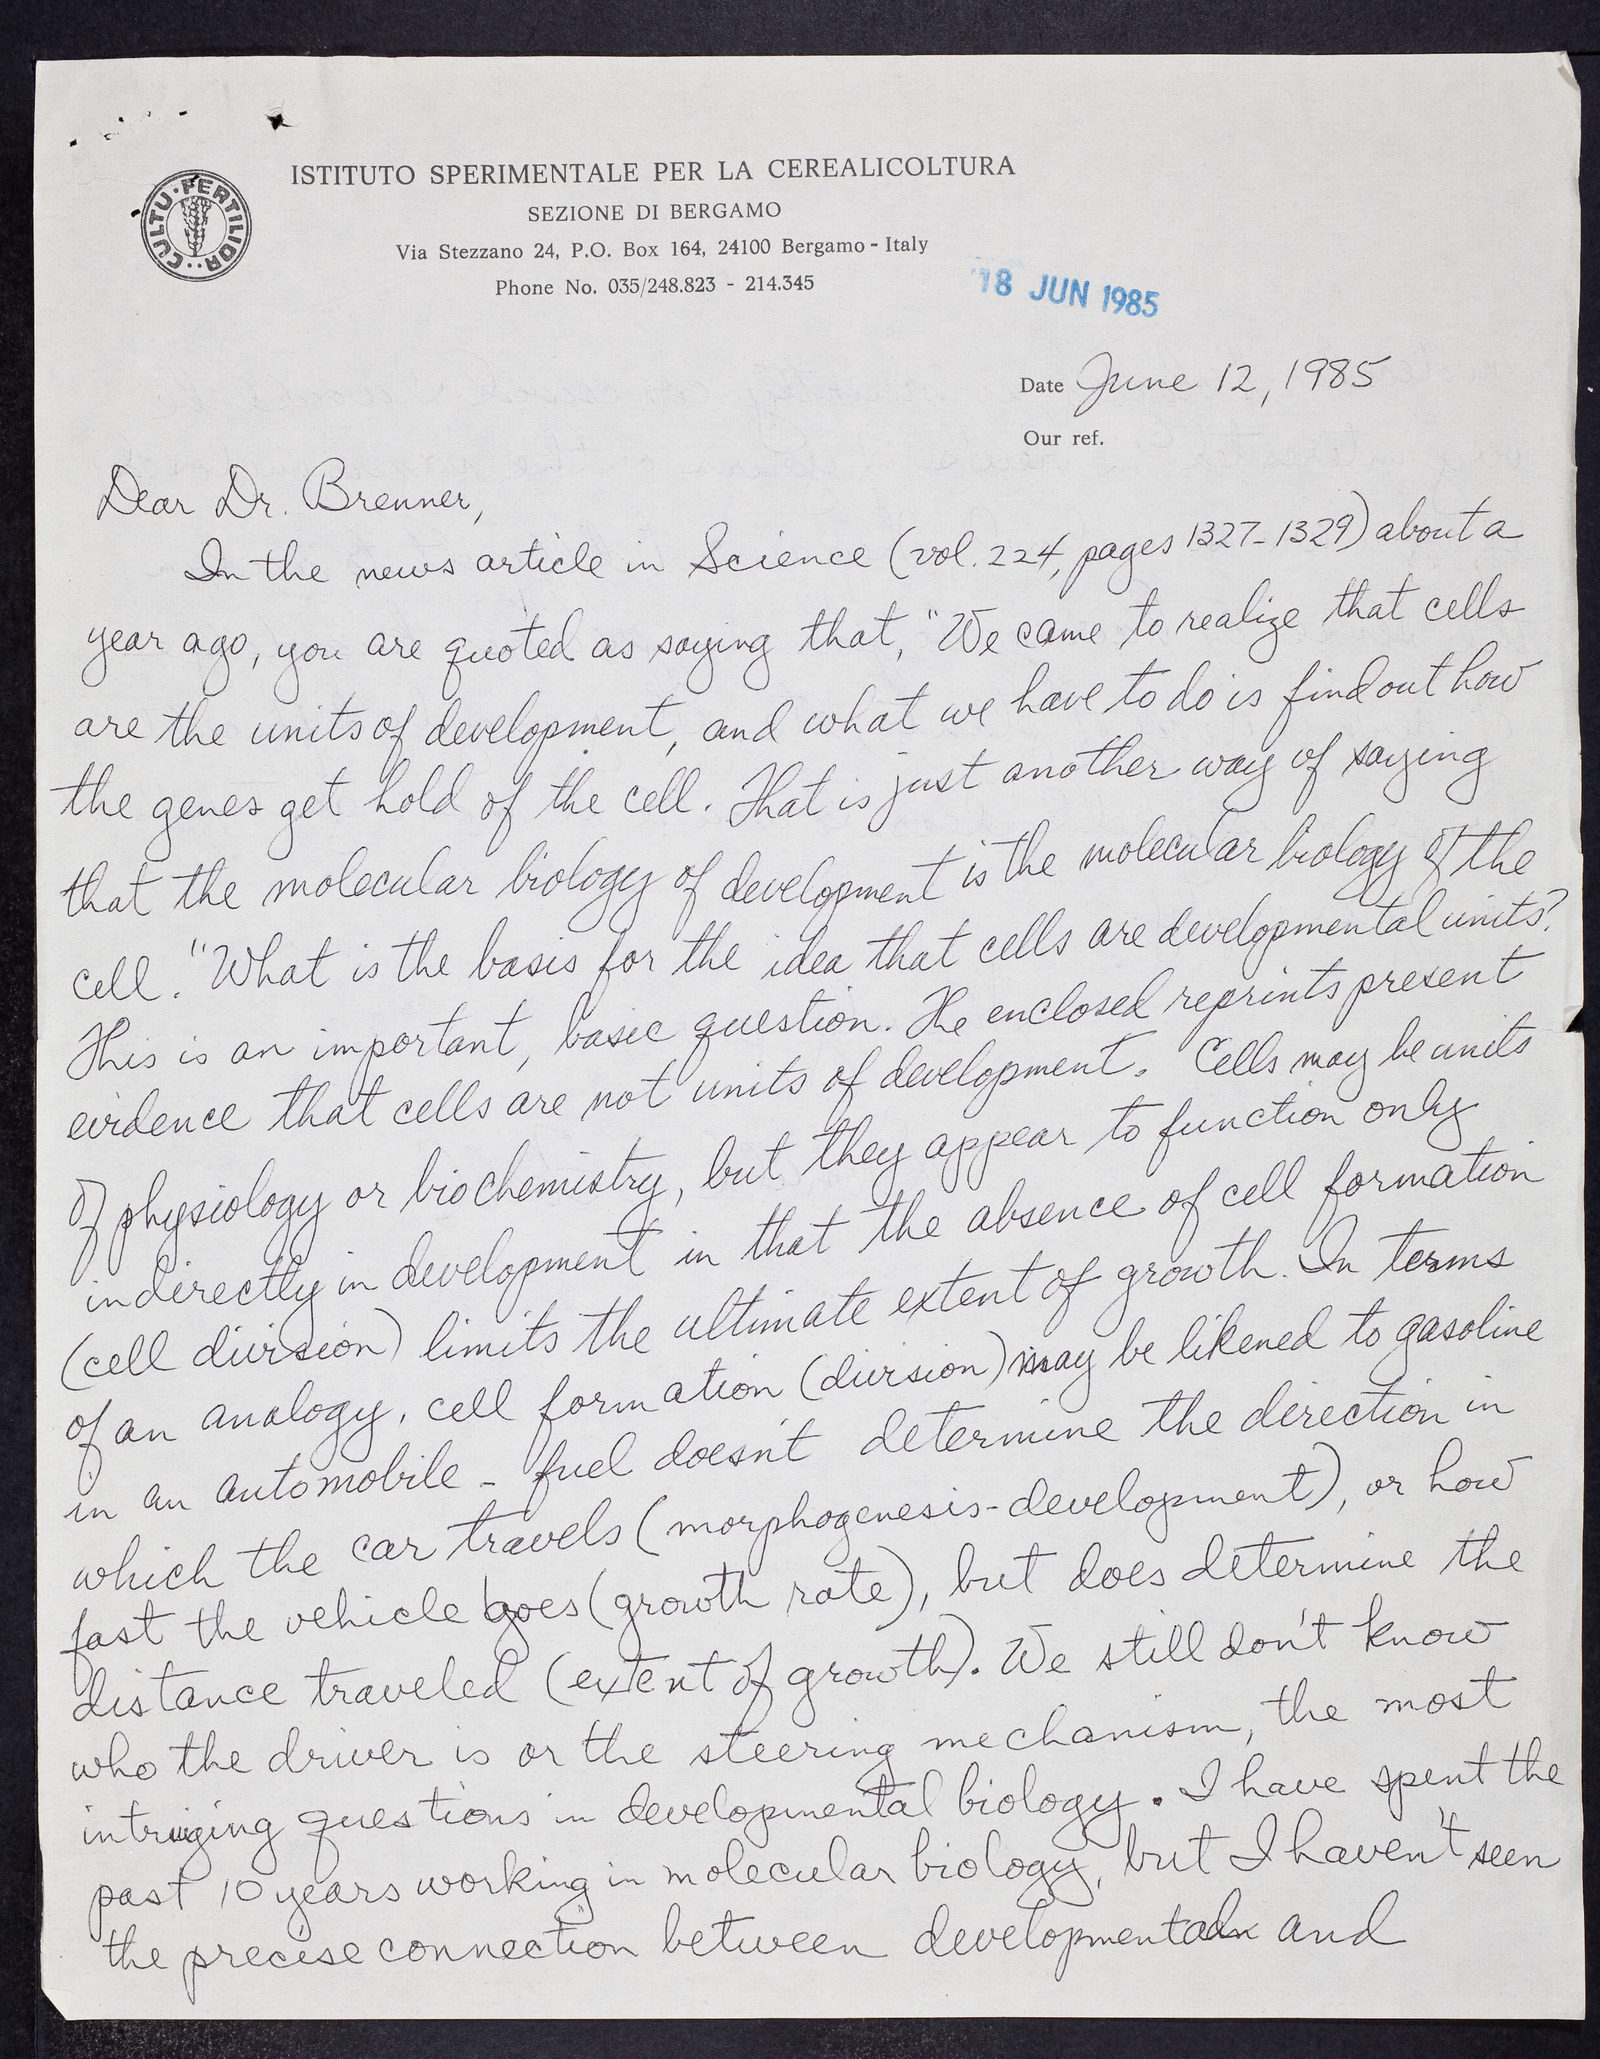 CULTU · FERTILIOR · ·
ISTITUTO SPERIMENTALE PER LA CEREALICOLTURA
SEZIONE DI BERGAMO
Via Stezzano 24, P.O. Box 164, 24100 Bergamo - Italy
Phone No. 035/248.823 - 214.345
18 JUN 1985
Date June 12, 1985
Our ref.
Dear Dr. Brenner,
In the news article in Science (vol. 224, pages 1327-1329) about a
year ago, you are quoted as saying that, "We came to realize that cells
are the units of development, and what we have to do is find out how
the genes get hold of the cell. That is just another way of saying
that the molecular biology of development is the molecular biology of the
cell." What is the basis for the idea that cells are developmental units?
This is an important, basic question. The enclosed reprints present
evidence that cells are not units of development. Cells may be units
of physiology or biochemistry, but they appear to function only
indirectly in development in that the absence of cell formation
(cell division) limits the ultimate extent of growth. In terms
of an analogy, cell formation (division) may be likened to gasoline
in an automobile - fuel doesn't determine the direction in
which the car travels (morphogenesis-development), or how
fast the vehicle goes (growth rate), but does determine the
distance traveled (extent of growth). We still don't know
who the driver is or the steering mechanism, the most
intruiging questions in developmental biology. I have spent the
past 10 years working in molecular biology, but I haven't seen
the precise connection between development and